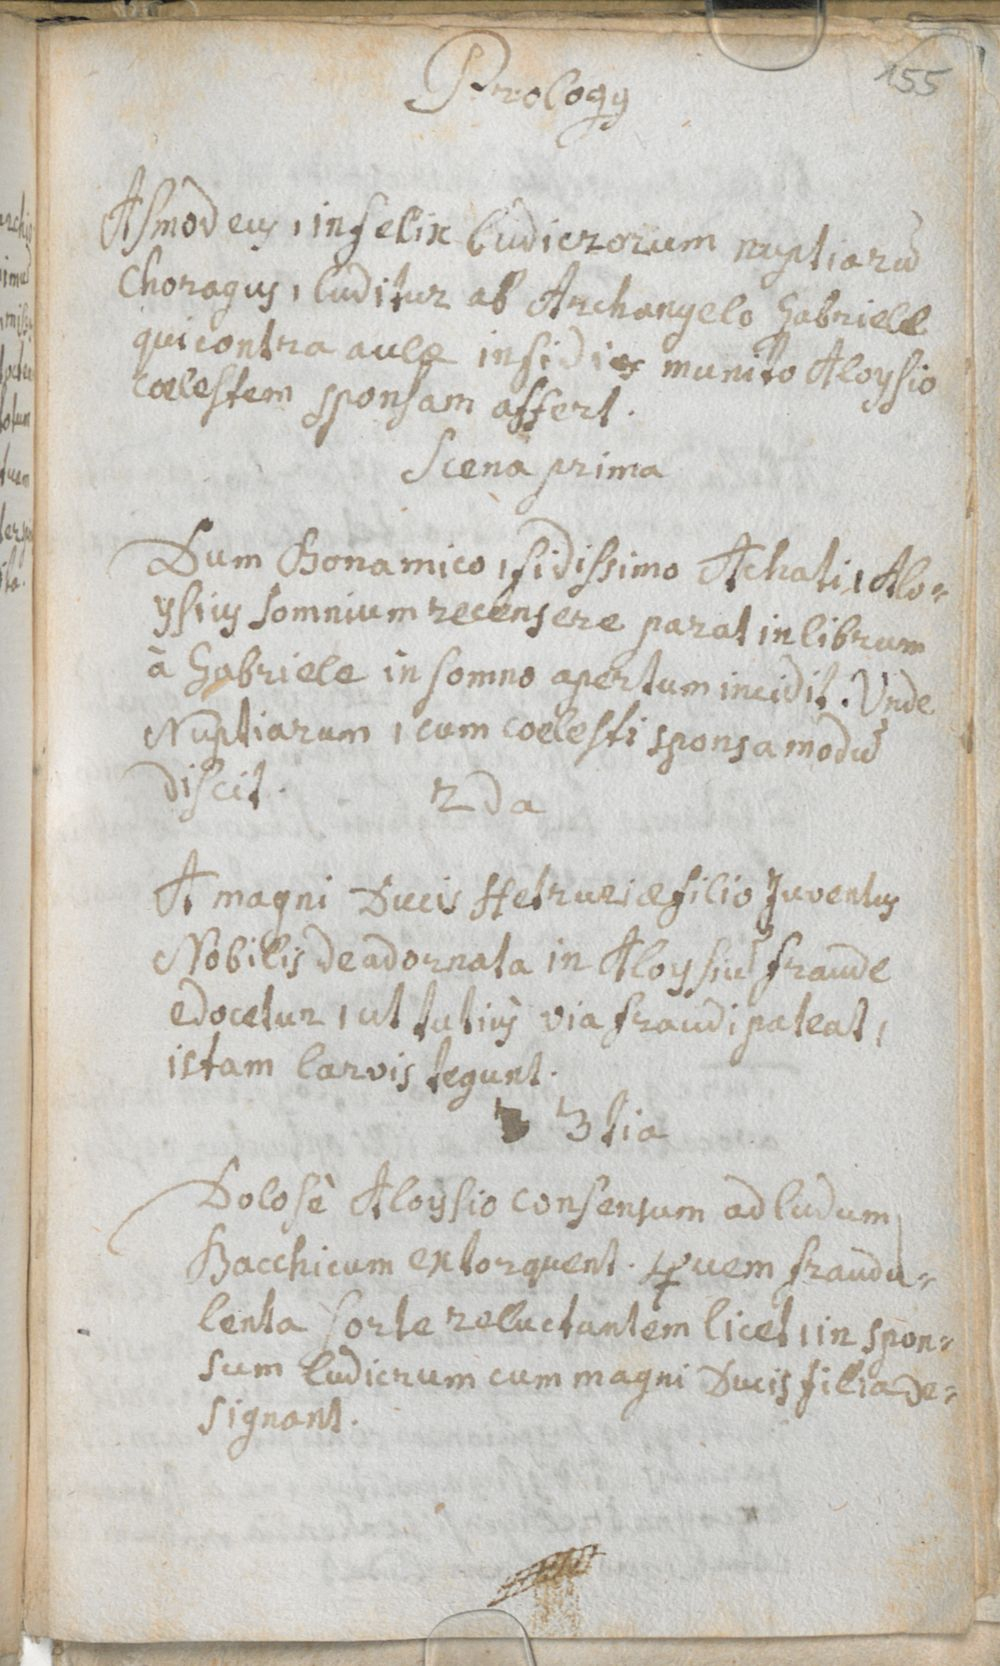 155
Prologq
Asmodeus, infelix ludicrorum nuptiarū
Choragus, luditur ab Archangelo Gabriele
qui contra aulæ insidias munito Aloysio
coelestem sponsam affert.
Scena prima
Dum Bonamico, fidissimo Achati, Alo-
ysius somnium recensere parat in librum
à Gabriele in somno apertum incidit. Unde
Nuptiarum, cum coelesti sponsa modū
discit.
2da
A magni Ducis Hetruriæ filio Juventus
Nobilis de adornata in Aloysiū fraude
edocetur, ut tutius via fraudi pateat,
istam larvis tegunt.
3tia
Dolosè Aloysio consensum ad ludum
Bacchicum extorquent. Quem fraudu-
lenta sorte reluctantem licet, in spon-
sum ludicrum cum magni Ducis filia de-
signant.